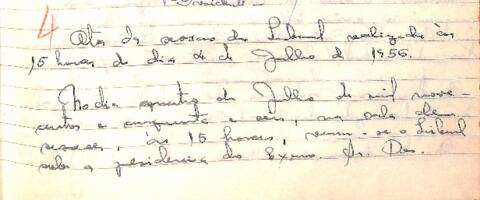 4
Ata da sessao do Tribunal realizada às
15 horas do dia 4 de Julho de 1956.
No dia quatro de Julho de mil nove-
centos e cinquenta e seis, na sala de
sessões, às 15 horas, reuniu-se o Tribunal
sob a presidencia do Exmo. Sr. Des.